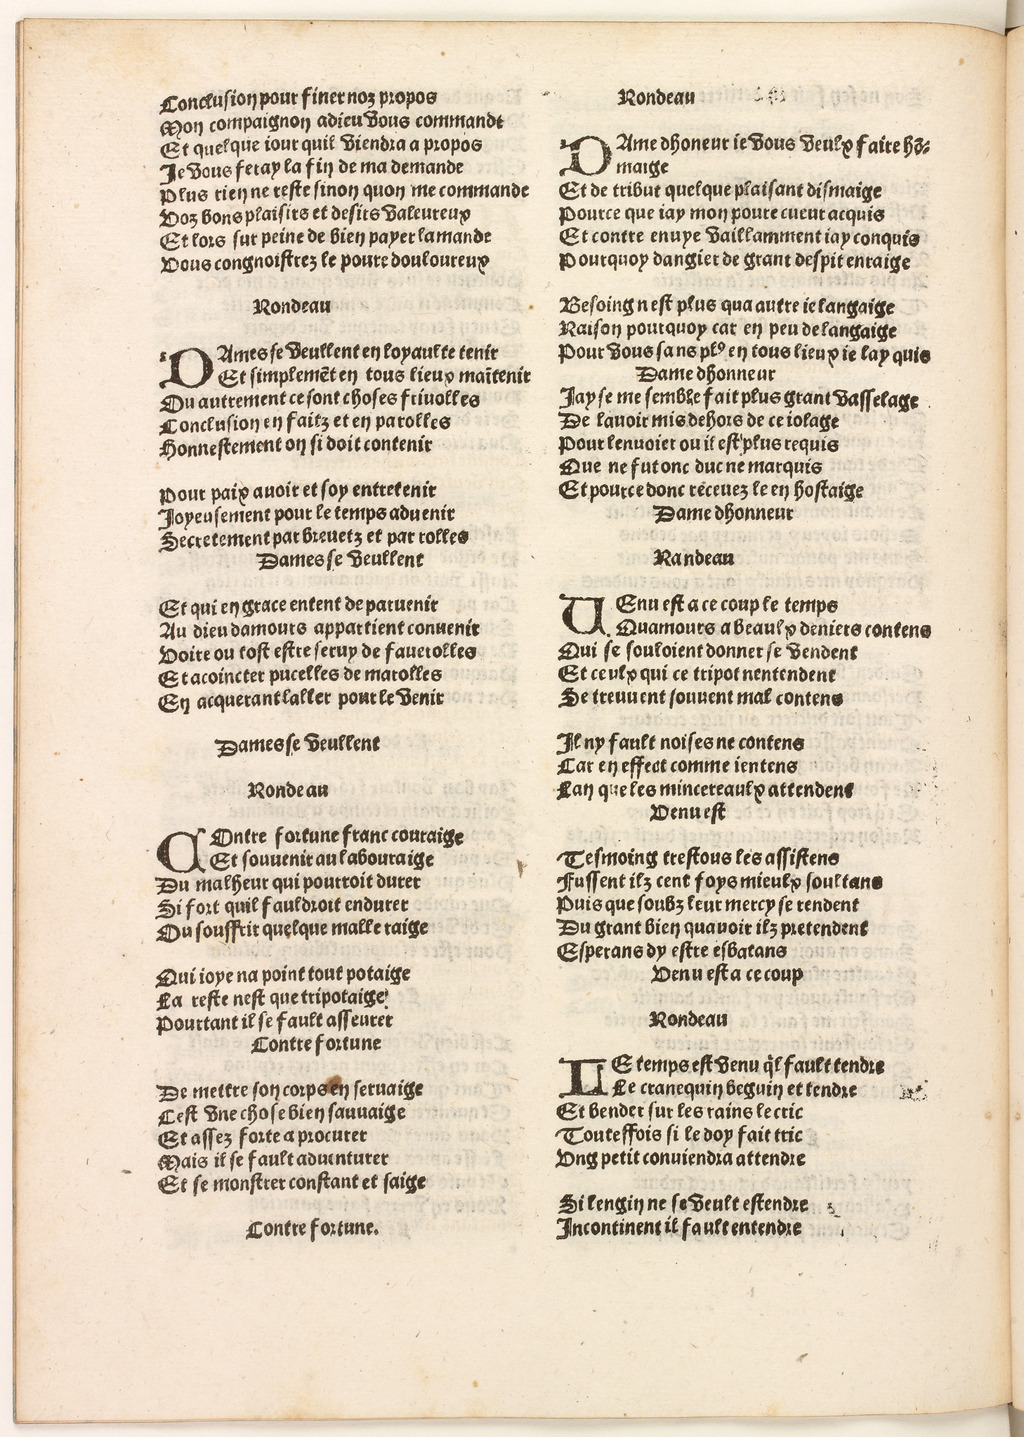 Conclusion pour finer noz propos
Mon compaignon adieu vous commandt
Et quelque iour quil viendra a propos
Je vous feray la fin de ma demande
Plus rien ne reste sinon quon me commande
Voz bons plaisirs et desirs valeureux
Et lors sur peine de bien payer lamande
Vous congnoistrez le poure douloureux
Rondeau
DAmes se veullent en loyaulte tenir
Et simplemēt en tous lieux maītenir
Ou autrement ce sont choses friuolles
Conclusion en faitz et en parolles
Honnestement on si doit contenir
Pour paix auoir et soy entretenir
Joyeusement pour le temps aduenir
Secretement par breuetz et par rolles
Dames se veullent
Et qui en grace entent de paruenir
Au dieu damours appartient conuenir
Voire ou tost estre seruy de fauerolles
Et acointer pucelles de marolles
En acquerant laller pour le venir
Dames se veullent
Rondeau
COntre fortune franc couraige
Et souuenir au labouraige
Du malheur qui pourroit durer
Si fort quil fauldroit endurer
Ou souffrir quelque malle raige
Qui ioye na point tout potaige
La reste nest que tripotaige
Pourtant il se fault asseurer
Contre fortune
De mettre son corps en seruaige
Cest vne chose bien sauuaige
Et assez forte a procurer
Mais il se fault aduenturer
Et se monstrer constant et saige
Contre fortune.
Rondeau
DAme dhoneur ie vous veulx faire hō-
maige
Et de tribut quelque plaisant dismaige
Pource que iay mon poure cueur acquis
Et contre enuye vaillamment iay conquis
Pourquoy dangier de grant despit enraige
Besoing nest plus qua autre ie langaige
Raison pourquoy car en peu de langaige
Pour vous sans plꝰ en tous lieux ie lay quis
Dame dhonneur
Jay se me semble fait plus grant vasselage
De lauoir mis dehors de ce iolage
Pour lenuoier ou il est plus requis
Que ne fut onc duc ne marquis
Et pource donc receuez le en hostaige
Dame dhonneur
Randeau
UEnu est a ce coup le temps
Quamours a beaulx deniers contens
Qui se souloient donner se vendent
Et ceulx qui ce tripot nentendent
Se treuuent souuent mal contens
Il ny fault noises ne contens
Car en effect comme ientens
Lan que les mincereaulx attendent
Venu est
Tesmoing trestous les assistens
Fussent ilz cent foys mieulx soultans
Puis que soubz leur mercy se rendent
Du grant bien quauoir ilz pretendent
Esperans dy estre esbatans
Venu est a ce coup
Rondeau
LE temps est venu ql̄ fault tendre
Le cranequin beguin et tendre
Et bender sur les rains le cric
Touteffois si le doy fait tric
Vng petit conuiendra attendre
Si lengin ne se veult estendre
Incontinent il fault entendre